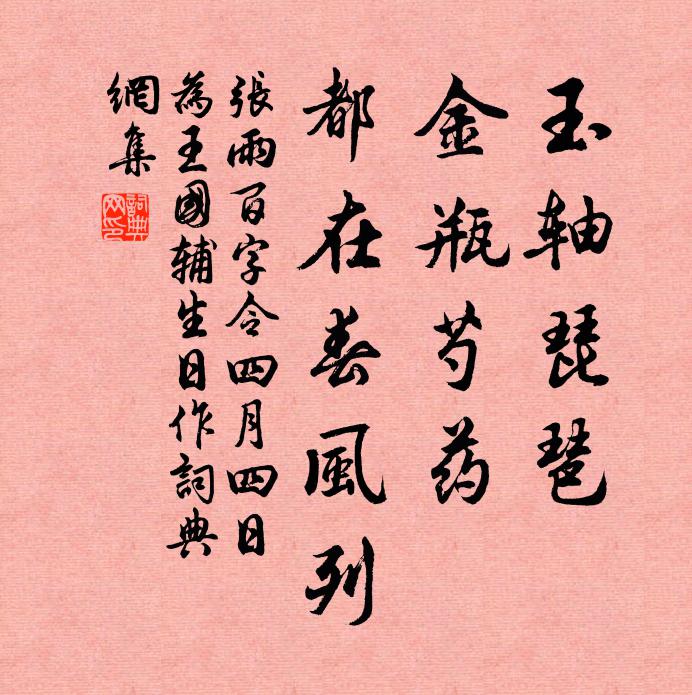 玉轴琵琶
金瓶芍药
都在春風列
張雨百字令四月四日
為王國辅生日作詞典
網集
詞典网印